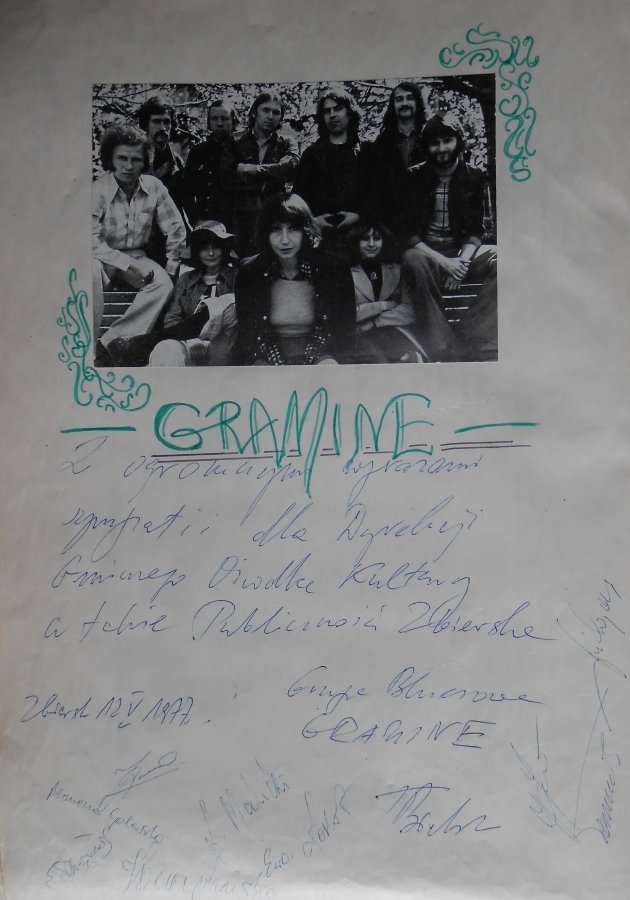 GRAMINE
Z ogromnymi wyrazami
sympatii dla Dyrekcji
Gminnego Ośrodka Kultury
a także Publiczności Zbierska
Grupa Bluesowa
GRAMINE
Zbiersk 12 V 1977.
Ewa